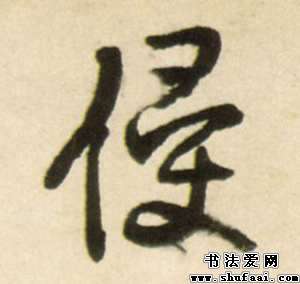 侵
书法爱网
www.shufaai.com